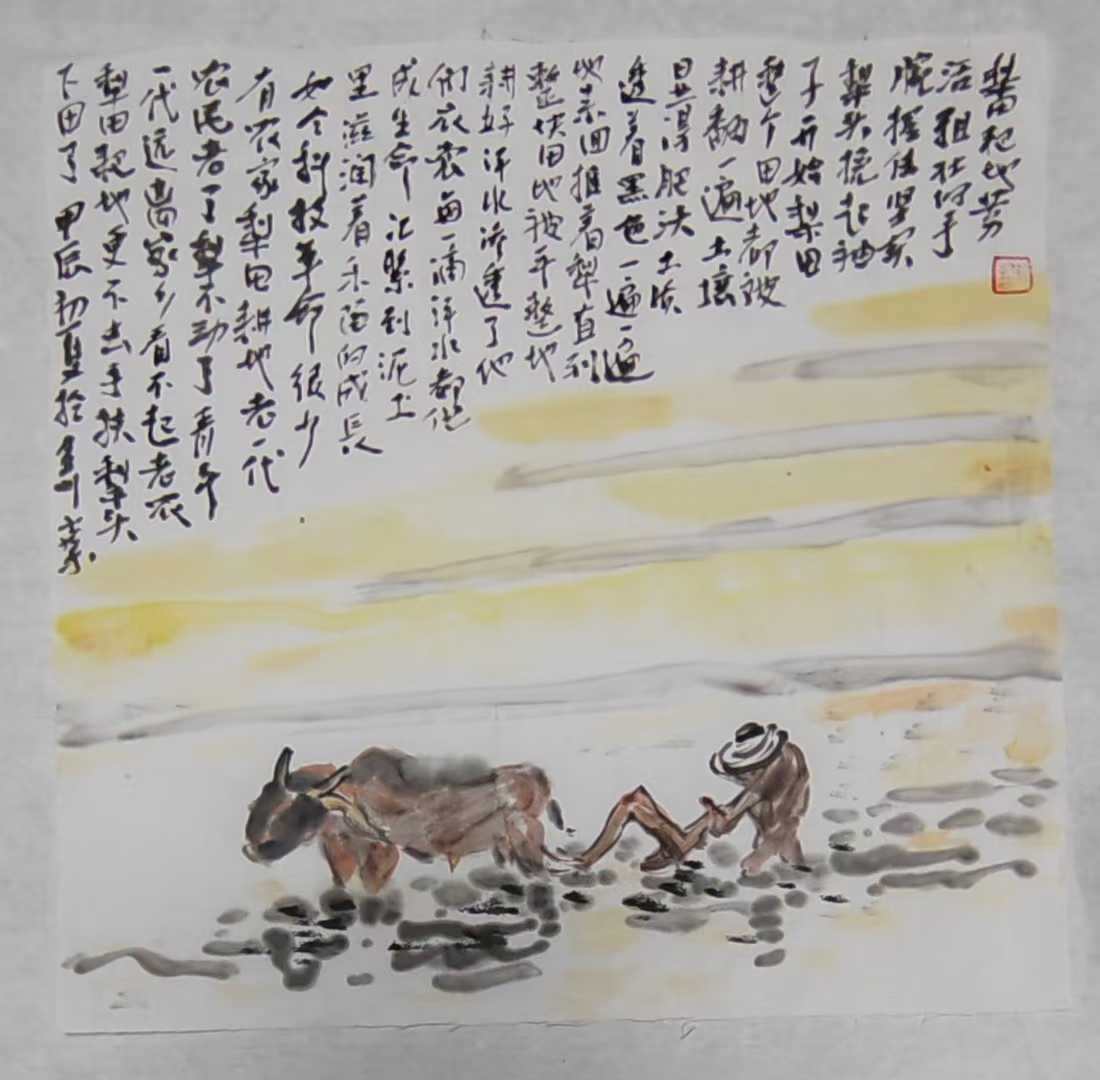 犁田耙地苦
活粗壮的手
腕握住坚实
犁头挽起袖
子开始犁田
整个田地都被
耕翻一遍土壤
显得肥沃土质
透着黑色一遍一遍
地来回推着犁直到
整块田地被平整地
耕好汗水渗透了他
们衣裳每一滴汗水都化
成生命汇聚到泥土
里滋润着禾苗的成長
如今科技革命很少
有农家犁田耕地老一代
农民老了犁不动了青年
一代远离家乡看不起老农
犁田耙地更不去手扶犁头
下田了甲辰初夏於